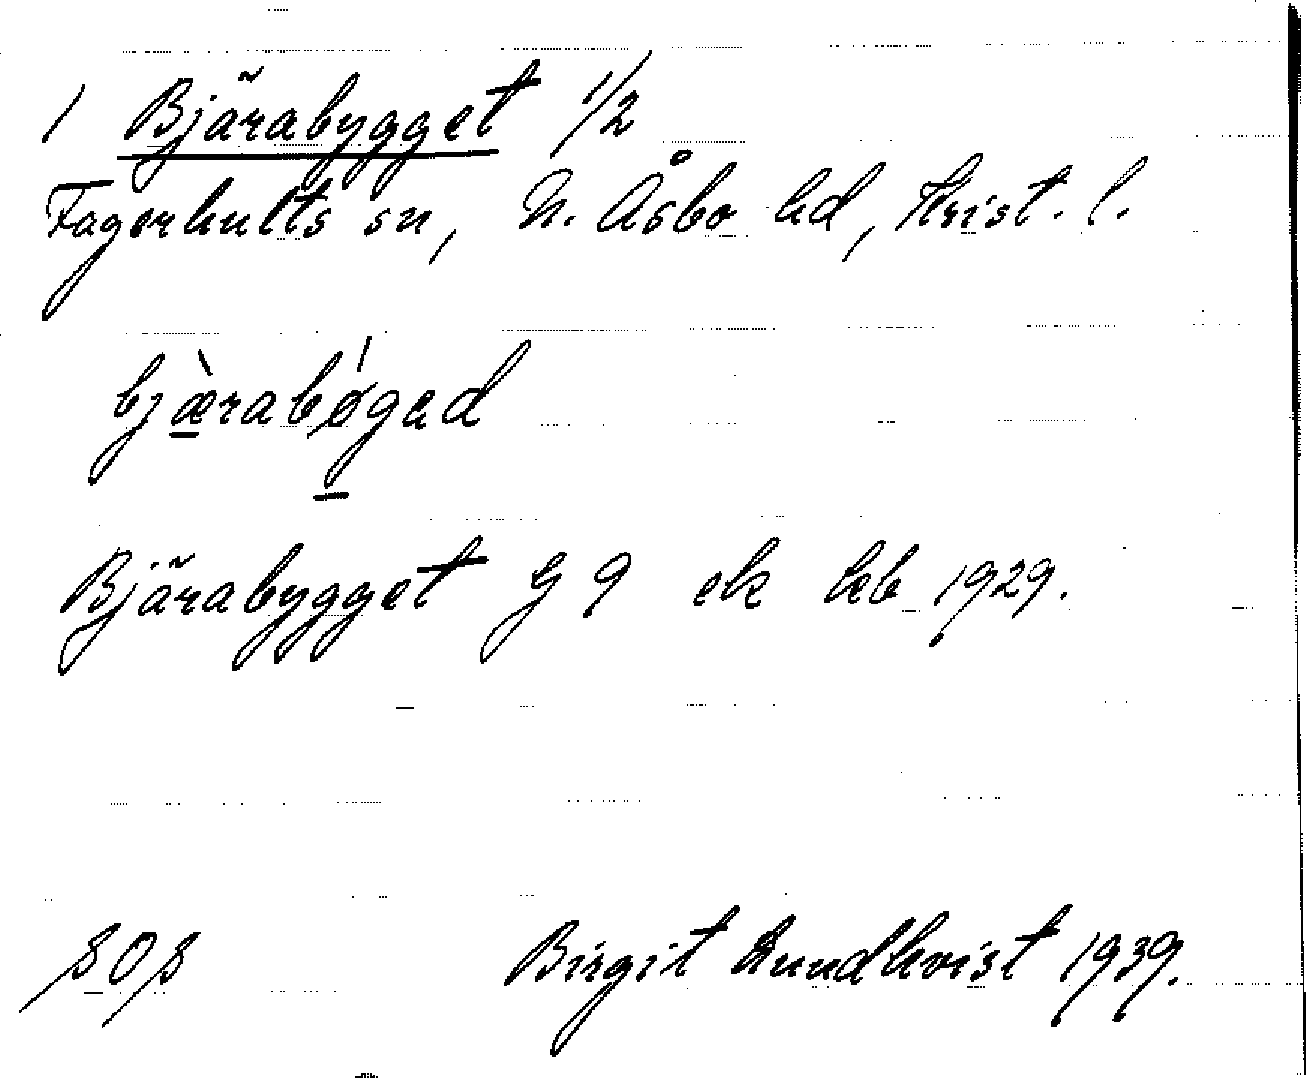 1 Bjärabygget 1/2
Fagerhults sn, N. Åsbo hd, Krist. l.
bjæ̀rabǿgad
Bjärabygget G 9 ek kb 1929.
SOS Birgit Lundkvist 1939.